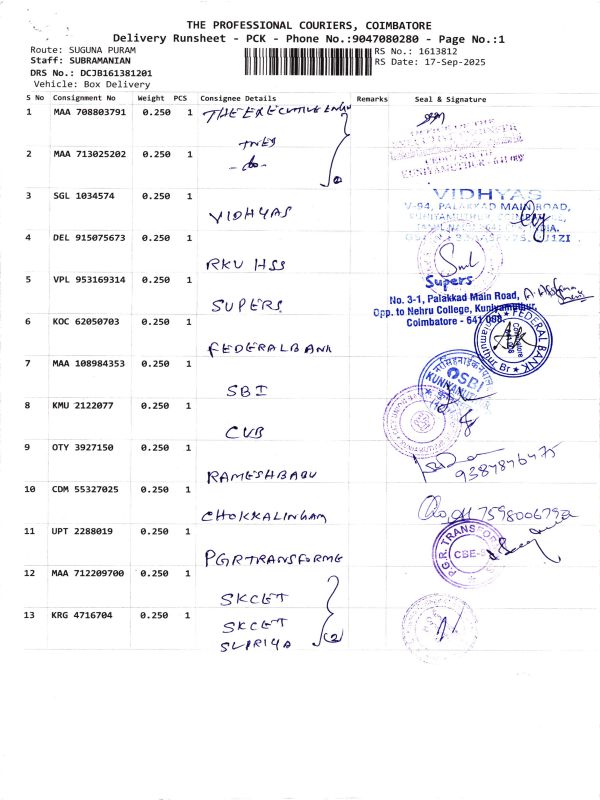 THE PROFESSIONAL COURIERS, COIMBATORE
Delivery Runsheet - PCK - Phone No.:9047080280 - Page No.:1
Route: SUGUNA PURAM
RS No.: 1613812
Staff: SUBRAMANIAN
RS Date: 17-Sep-2025
DRS No.: DCJB161381201
Vehicle: Box Delivery
S No Consignment No Weight PCS Consignee Details Remarks Seal & Signature
1 MAA 708803791 0.250 1 THE EXECUTIVE ENGR
TNEB
2 MAA 713025202 0.250 1 -do-
KUNIYAMUTHUR
3 SGL 1034574 0.250 1 VIDHYAS
VIDHYAS
V-94, PALAKKAD MAIN ROAD,
4 DEL 915075673 0.250 1 RKV HSS
5 VPL 953169314 0.250 1 SUPERS
Supers
No. 3-1, Palakkad Main Road,
Opp. to Nehru College, Kuniyamuthur,
Coimbatore - 641 008.
6 KOC 62050703 0.250 1 FEDERAL BANK
FEDERAL BANK
7 MAA 108984353 0.250 1 SBI
SBI
8 KMU 2122077 0.250 1 CUB
9 OTY 3927150 0.250 1 RAMESHBABU
9387876475
10 CDM 55327025 0.250 1 CHOKKALINGAM
11 UPT 2288019 0.250 1 PGRTRANSFORME
P.G.R. TRANSFOR
CBE-
12 MAA 712209700 0.250 1 SKCET
13 KRG 4716704 0.250 1 SKCET